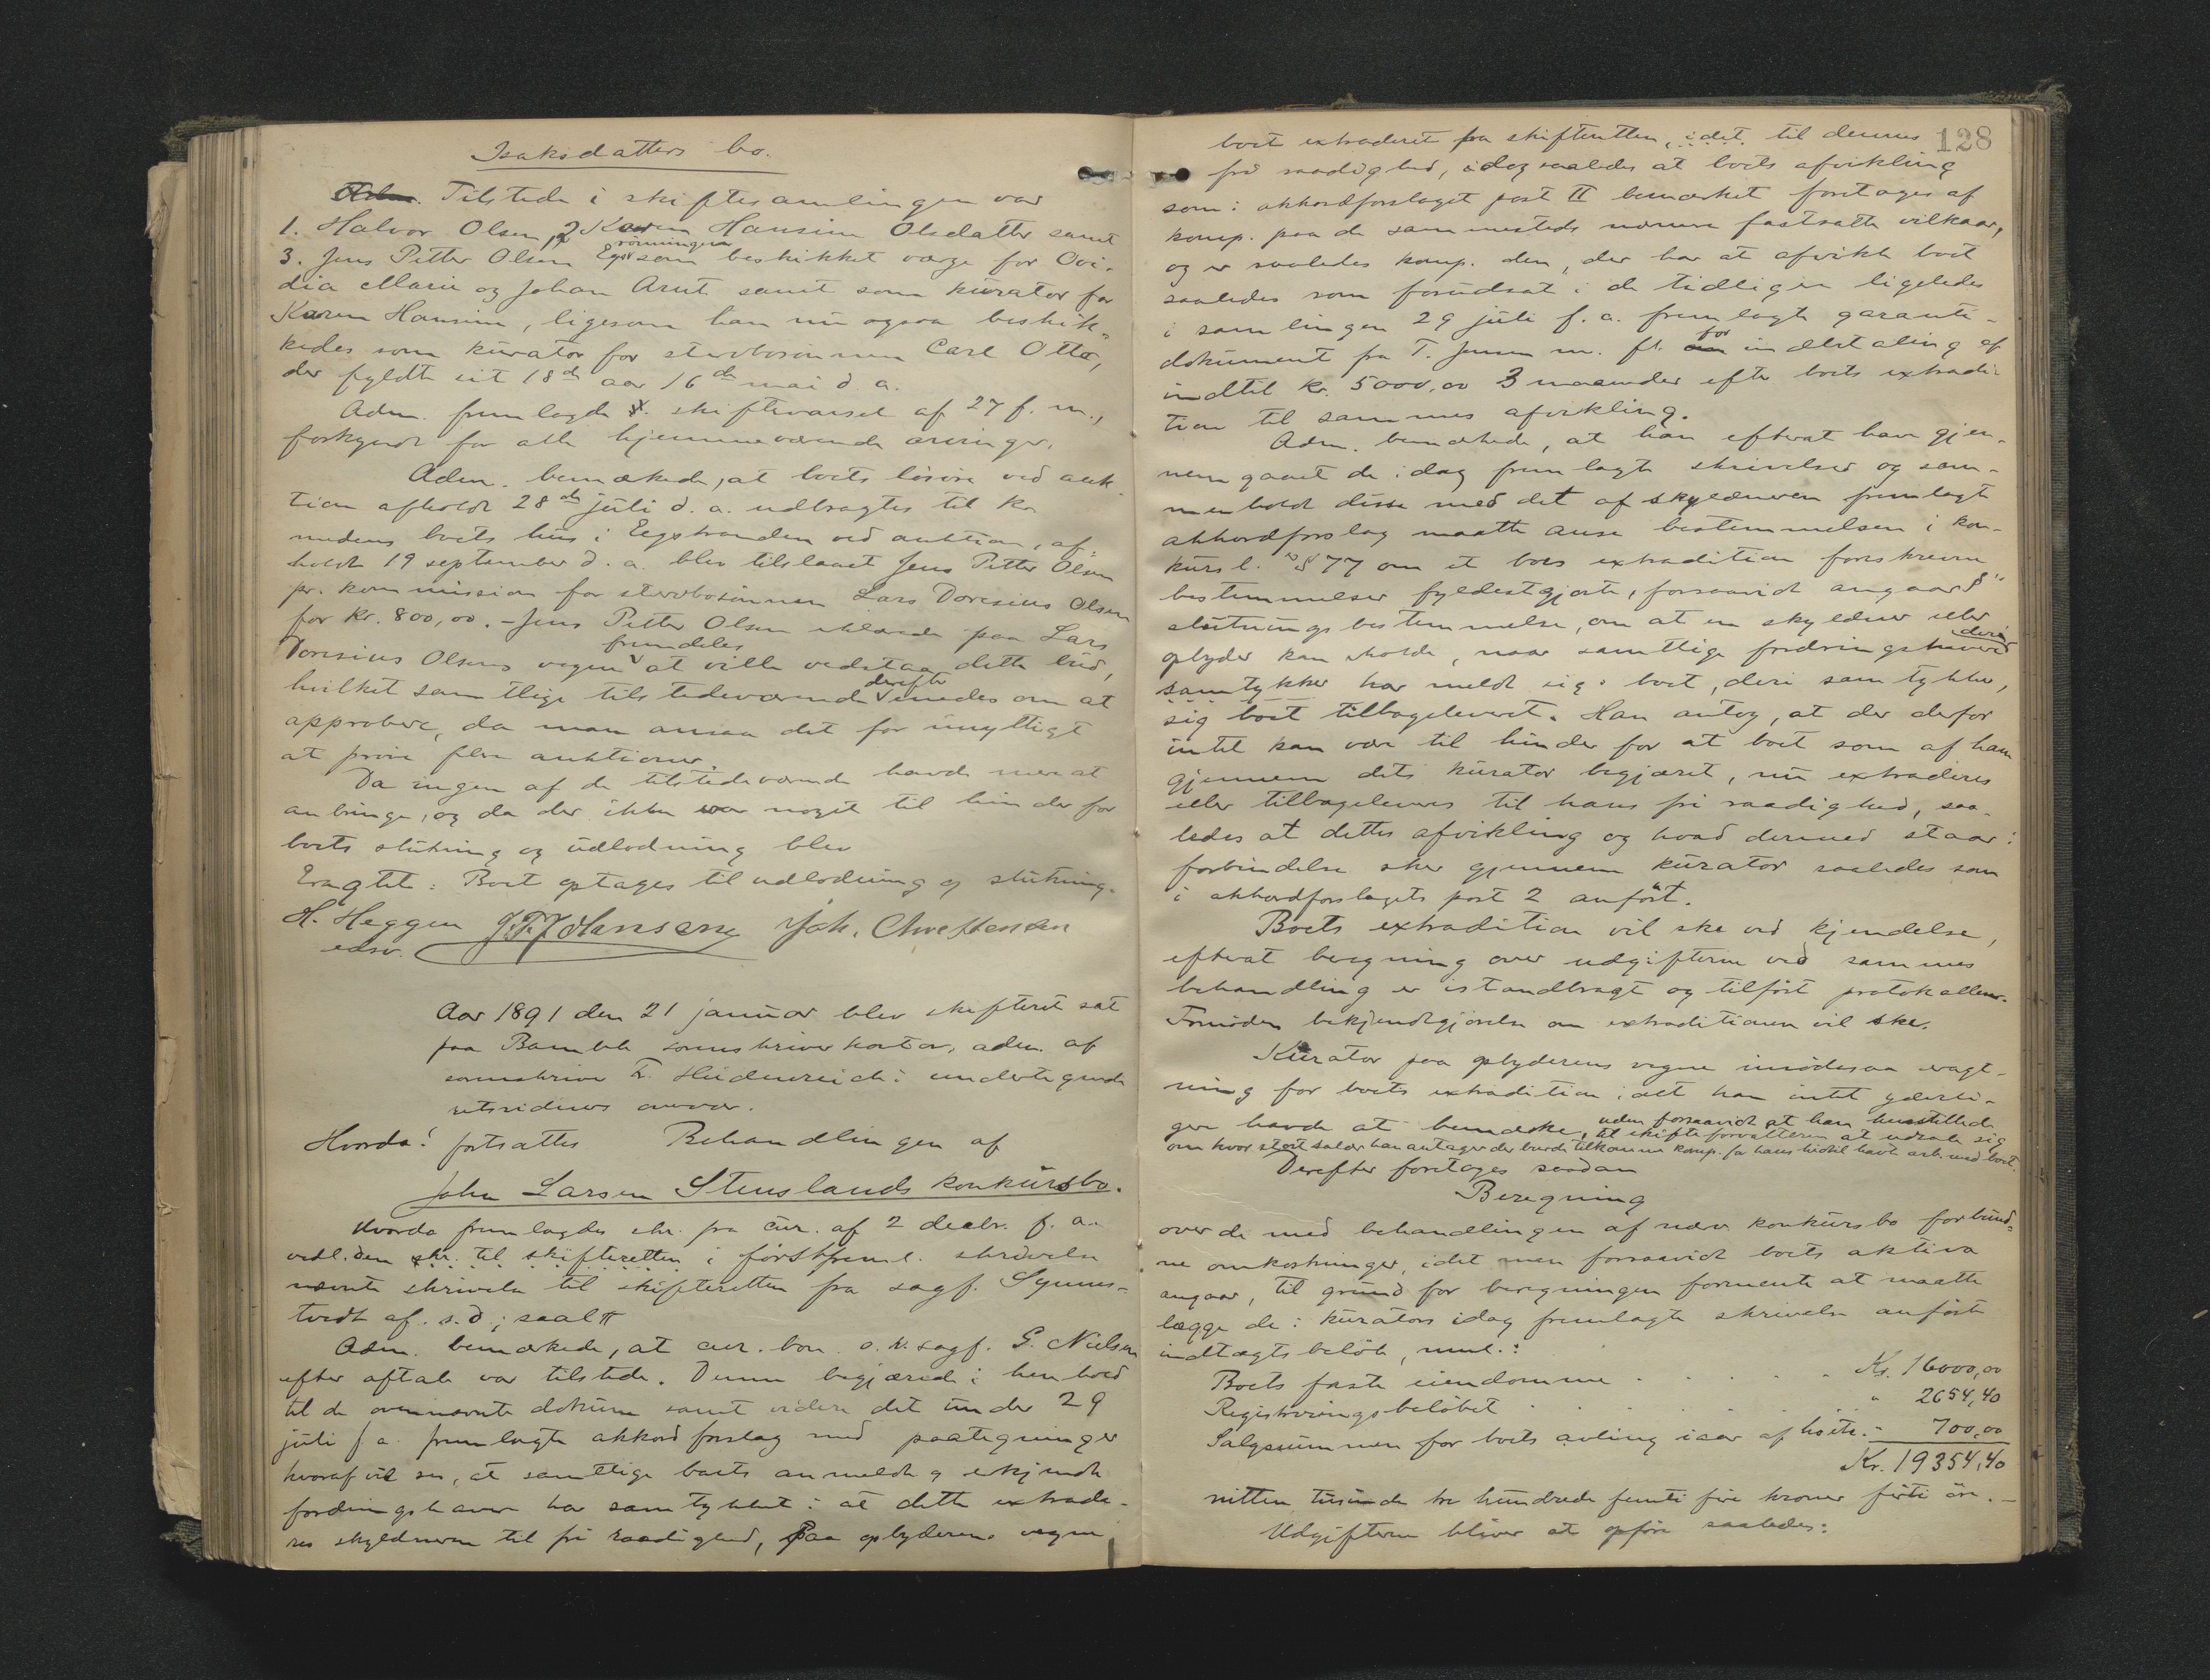 Isaksdatters bo.
Tilstede i skiftesamlingen var
1. Halvor Olsen, 2 Karen Hansine Olsdatter samt
3. Jens Petter Olsen Egsrönningen som beskikket værge for Ovi-
dia Marie og Johan Arnt samt som kurator for
Karen Hansine, ligesom han nu ogsaa beskik-
kedes som kurator for stervbosönnen Carl Otto,
der fyldte sit 18de aar 16de mai d. a.
Adm. fremlagde skiftevarsel af 27 f. m.,
forkyndt for alle hjemmeværende arvinger.
Adm. bemærkede, at boets lösöre ved auk-
tion afholdt 28de juli d. a. udbragtes til Kr.
medens boets hus i Eegstranden ved auktion, af-
holdt 19 september d. a. blev tilslaaet Jens Petter Olsen
pr. kommission for stervbosönnen Lars Doresius Olsen
for Kr. 800,00. - Jens Petter Olsen erklærede paa Lars
Doresius Olsens vegne fremdeles at ville vedstaa dette bud,
hvilket samtlige tilstedeværende derefter enedes om at
approbere, da man ansaa det for unyttigt
at pröve flere auktioner.
Da ingen af de tilstedeværende havde mer at
anbringe, og da der ikke var noget til hinder for
boets slutning og udlodning blev
Eragtet: Boet optages til udlodning og slutning.
H. Heggen J.T.J. Hansen Joh. Christensen
edsv.
Aar 1891 den 21 januar blev skifteret sat
paa Bamble sorenskriverkontor, adm. af
sorenskriver F. Heidenreich i undertegnede
retsvidners overvær.
Hvorda! fortsattes Behandlingen af
John Larsen Stenslands konkursbo.
Hvorda fremlagdes skr. fra cur. af 2 decbr. f. a.
vedl. den skr. til skifteretten i förstfreml. skrivelse
nævnte skrivelse til skifteretten fra sagf. Synnes-
tvedt af s. d.; saal
Adm. bemærkede, at cur. bon. o. r. sagf. G. Nielsen
efter aftale var tilstede. Denne begjærede i henhold
til de ovennævnte dokum. samt videre det under 29
juli f. a. fremlagte akkordforslag med paategninger
hvoraf vil ses, at samtlige boets anmeldte og erkjendte
fordringshavere har samtykket i at dette extrade-
res skyldneren til fri raadighed, paa opbyderens vegne
128
boet extraderet fra skifteretten, idet til dennes
fri raadighed, idag saaledes at boets afvikling
som i akkordforslaget post II bemærket foretages af
komp. paa de sammesteds nærmere fastsatte vilkaar,
og er saaledes komp. den, der har at afvikle boet
saaledes som forudsat i de tidligere ligeledes
i samlingen 29 juli f. a. fremlagte garanti-
dokument fra T. Jensen m. fl. for indbetaling af
indtil Kr. 5000,00 3 maaneder efter boets extradi-
tion til sammes afvikling.
Adm. bemærkede, at han efterat have gjen-
nemgaaet de idag fremlagte skrivelser og sam-
menholdt disse med det af skyldneren fremlagte
akkordforslag maatte anse bestemmelsen i kon-
kursl.s § 77 om et boes extradition foreskrevne
bestemmelser fyldestgjorte, forsaavidt angaar §'s
slutningsbestemmelse, om at en skyldner eller
opbyder kan erholde, naar samtlige fordringshavere deri
samtykker har meldt sig i boet, deri samtykker,
sig boet tilbageleveret. Han antog, at der derfor
intet kan være til hinder for at boet som af ham
gjennem dets kurator begjæret, nu extraderes
eller tilbageleveres til hans fri raadighed, saa-
ledes at dettes afvikling og hvad dermed staar i
forbindelse sker gjennem kurator saaledes som
i akkordforslagets post 2 anfört.
Boets extradition vil ske ved kjendelse,
efterat beregning over udgifterne ved sammes
behandling er istandbragt og tilfört protokollen.
Fornöden bekjendtgjörelse om extraditionen vil ske.
Kurator paa opbyderens vegne imödesaa eragt-
ning for boets extradition idet han intet yderli-
gere havde at bemærke, uden forsaavidt at han henstillede
til skifteforvalteren at udtale sig
om hvor stort salær han antager der burde tilkomme komp. for hans hidtil havte arb. med boet.
Derefter foretages saadan
Beregning
over de med behandlingen af nærv. konkursbo forbund-
ne omkostninger, idet men forsaavidt boets aktiva
angaar, til grund for beregningen formente at maatte
lægge de i kurators idag fremlagte skrivelse anförte
indtægtsbelöb, nml.:
Boets faste eiendomme . . . . . Kr. 16000,00
Registreringsbelöbet . . . . . " 2654,40
Salgssummen for boets avling især af höite. - 700,00
Kr. 19354,40
nitten tusinde tre hundrede femti fire kroner firti öre. -
Udgifterne bliver at opföre saaledes: